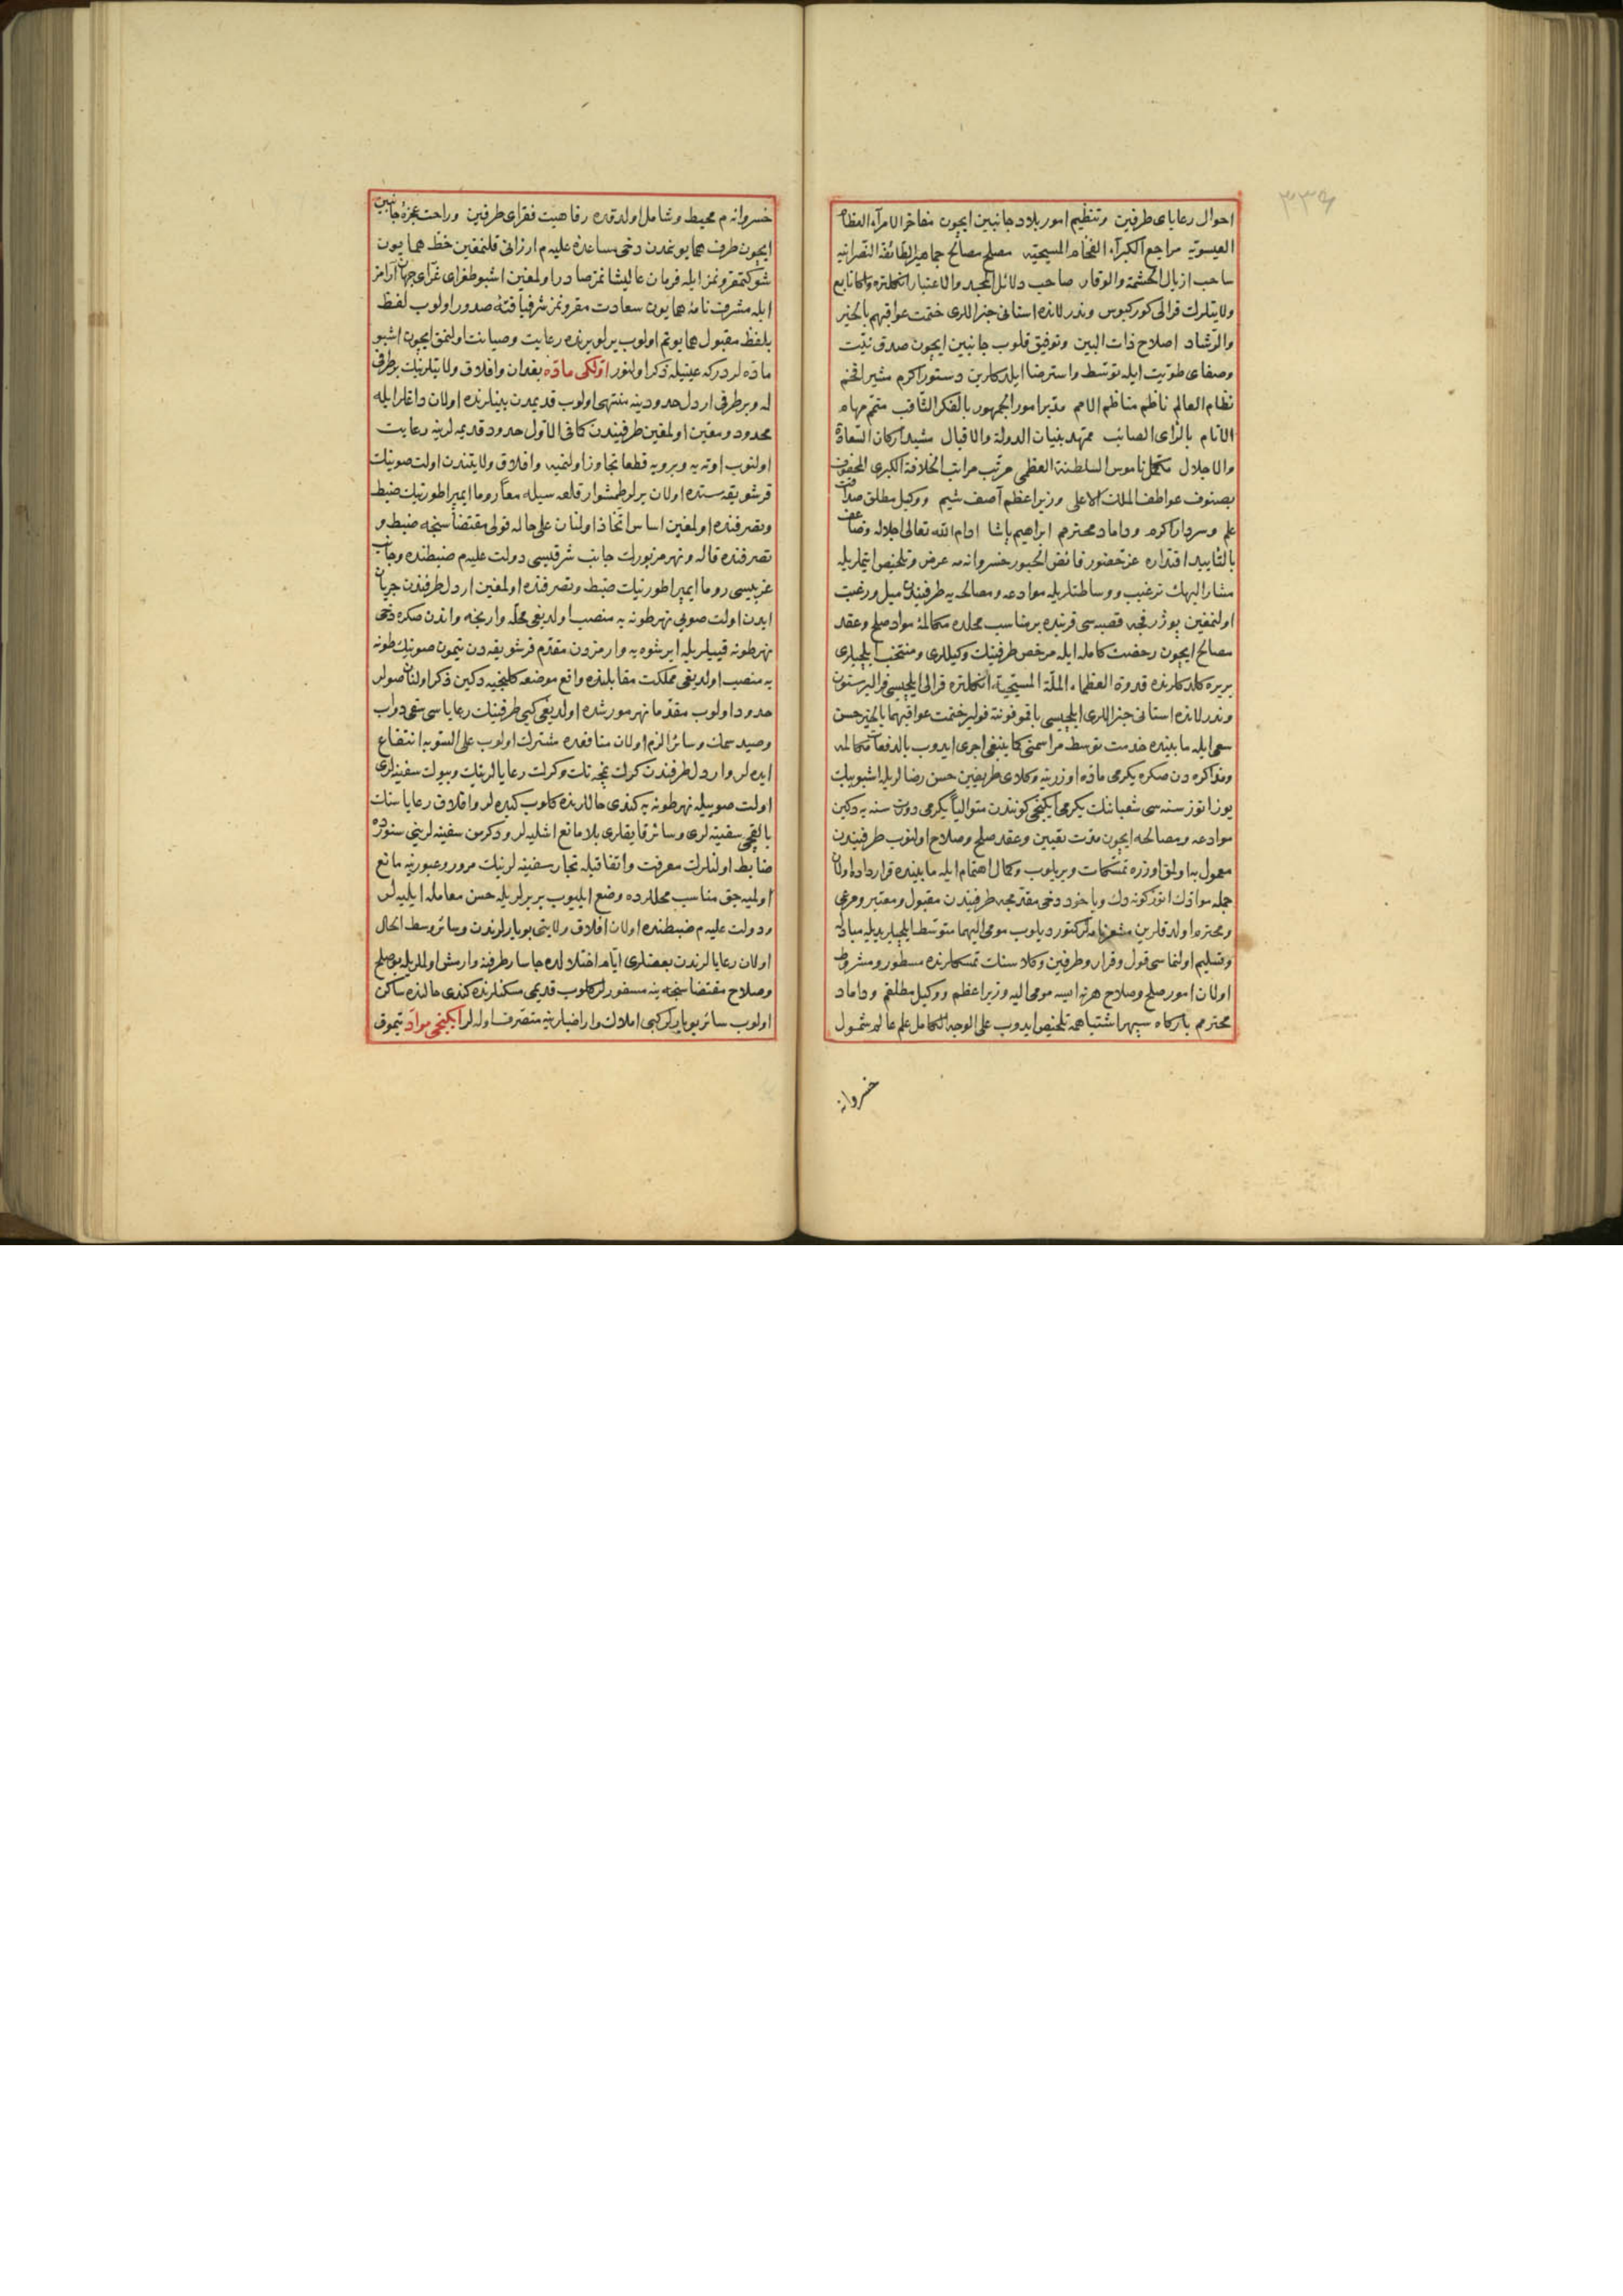 ٣٣٩
احوال رعایای طرفین وتنظیم امور بلاد جانبین ایچون مفاخر الامرآء العظام
العیسویه مراجع الکبرآء الفخام المسیحیه مصلح مصالح جماهیر الطائفة النصرانیه
ساحب اذیال الحشمة والوقار صاحب دلائل المجد والاعتبار انکلتره واکا تابع
ولایتلرك قرالی کورکیوس وندرلانده استانی جنراللری ختمت عواقبهم بالخیر
والرشاد اصلاح ذات البین وتوفیق قلوب جانبین ایچون صدق نیت
وصفای طویت ایله توسط واسترضا ایلدکلرین دستور اکرم مشیر افخم
نظام العالم ناظم مناظم الامم مدبر امور الجمهور بالفکر الثاقب متمم مهام
الانام بالرای الصائب ممهد بنیان الدولة والاقبال مشید ارکان السعادة
والاجلال مکمل ناموس السلطنة العظمی مرتب مراتب الخلافة الکبری المحفوف
بصنوف عواطف الملك الاعلی وزیر اعظم آصف شیم ووکیل مطلق صداقت
علم وسردار اکرم وداماد محترمم ابراهیم پاشا ادام الله تعالی اجلاله وضاعف
بالتأیید اقتداره عز حضور فائض الحبور خسروانه مه عرض وتلخیص ایتملریله
مشار الیهك ترغیب ووساطتلریله موادعه ومصالحه یه طرفیندن میل ورغبت
اولنمغین پوژرفچه قصبه سی قربنده بر مناسب محلده مکالمۀ مواد صلح وعقد
مصالح ایچون رخصت کامله ایله مرخص طرفینك وکیللری ومنتخب ایلچیلری
بریره کلدکلرنده قدوة العظماء الملة المسیحیه انکلتره قرالی ایلچیسی قوالیر ستون
وندرلانده استانی جنراللری ایلچیسی یاقمو قونته قولیر ختمت عواقبهما بالخیر حسن
سعی ایله مابینده خدمت توسط مراسمنی کما ینبغی اجری ایدوب بالدفعات مکالمه
ومذاکره دن صکره یکرمی ماده اوزرینه وکلای طرفین حسن رضالریله اشبو بیك
یوز اتوز سنه سی شعباننك یکرمی ایکنجی کونندن متوالیاً یکرمی دورت سنه یه دکین
موادعه ومصالحه ایچون مدت تعیین وعقد صلح وصلاح اولنوب طرفیندن
معمول به اولمق اوزره تمسکات ویریلوب وکمال اهتمام ایله مابینده قرارداده اولان
جمله موادك اتوز کونه دك ویاخود دخی مقدمجه طرفیندن مقبول ومعتبر ومرعی
ومحترم اولدقلرین مشعر نامه لر کتوردیلوب مومی الیهما متوسط ایلچیلر یدیله مبادله
وتسلیم اولنماسی قول وقرار وطرفین وکلاسنك تمسکلرنده مسطور ومشروط
اولان امور صلح وصلاح هر نه ایسه مومی الیه وزیر اعظم ووکیل مطلقم وداماد
محترمم بارکاه سپهر اشتباهمه تلخیص ایدوب علی الوجه الکامل علم عالم شمول
خسروانه
خسروانه م محیط وشامل اولدقده رفاهیت فقرای طرفین وراحت عجزۀ جانبین
ایچون طرف همایونمدن دخی مساعدۀ علیه م ارزانی قلنمغین خط همایون
شوکتمقرونمز ایله فرمان عالیشانمز صادر اولمغین اشبو طغرای غرای جهان آرامز
ایله مشرف نامۀ همایون سعادت مقرونمز شرفیافتۀ صدور اولوب لفظ
بلفظ مقبول همایونم اولوب یرلو یرنده رعایت وصیانت اولنمق ایچون اشبو
ماده لردرکه عینیله ذکر اولنور اولکی ماده بغدان وافلاق ولایتلرینك بر طرفی
له وبر طرفی اردل حدودینه منتهی اولوب قدیمدن بینلرنده اولان داغلر ایله
محدود ومعین اولمغین طرفیندن کما فی الاول حدود قدیمه لرینه رعایت
اولنوب اوته یه وبرویه قطعا تجاوز اولنمیه وافلاق ولایتندن اولت صوینك
قرشو یقه سنده اولان یرلر وطمشوار قلعه سیله معاً روما ایمپراطورینك ضبط
وتصرفنده اولمغین اساس اتخاذ اولنان علی حاله قولی مقتضاسنجه ضبط و
تصرفنده قاله ونهر مزبورك جانب شرقیسی دولت علیه م ضبطنده وجانب
غربیسی روما ایمپراطورینك ضبط وتصرفنده اولمغین اردل طرفندن جریان
ایدن اولت صویی نهر طونه یه منصب اولدیغی محله وارنجه واندن صکره دخی
نهر طونه قییلریله ایرشوه یه وارمزدن مقدم قرشو یقه دن تیمون صوینك طونه
یه منصب اولدیغی مملکت مقابلنده واقع موضعه کلنجیه دکین ذکر اولنان صولر
حدود اولوب مقدما نهر مورشده اولدیغی کبی طرفینك رعایاسی سقی دواب
وصید سمك وسائر الزم اولان منافعده مشترك اولوب علی السویه انتفاع
ایده لر واردل طرفندن کرك نمچه نك وکرك رعایالرینك وبیوك سفینه لری
اولت صوییله نهر طونه یه کندی حاللرنده کلوب کیده لر وافلاق رعایاسنك
بالقجی سفینه لری وسائر قایقلری بلا مانع اشلیه لر ودکرمن سفینه لرینی سنورده
ضابط اولنلرك معرفت واتفاقیله تجار سفینه لرینك مرور وعبورینه مانع
اولمیه جق مناسب محللرده وضع ایلیوب بربرلریله حسن معامله ایلیه لر
ودولت علیه م ضبطنده اولان افلاق ولایتی بویارلرندن وسائر وسط الحال
اولان رعایالرندن بعضلری ایام اختلالده جاسار طرفنه وارمش اولملریله بو صلح
وصلاح مقتضاسنجه ینه مسفورلر کلوب قدیمی مسکنلرنده کندی حالنده ساکن
اولوب سائر بویارلر کبی املاك واراضیلرینه متصرف اوله لر ایکنجی مواد تیموق